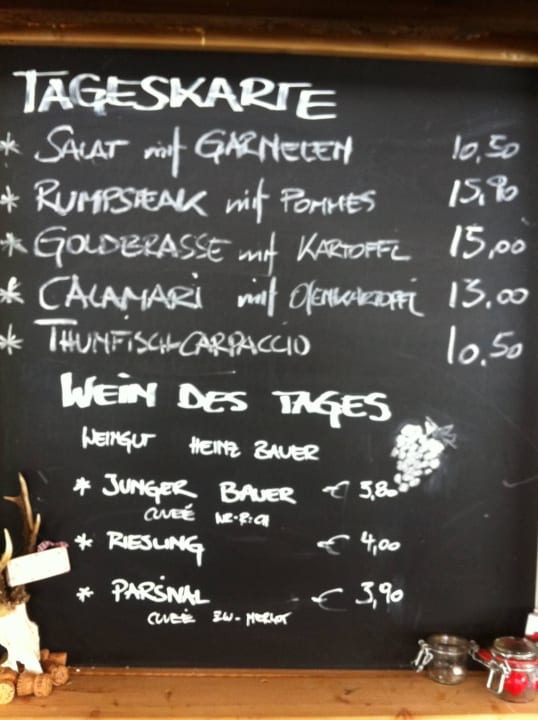 TAGESKARTE
* SALAT mit GARNELEN 10,50
* RUMPSTEAK mit POMMES 15,90
* GOLDBRASSE mit KARTOFFL 15,00
* CALAMARI mit OFENKARTOFFL 13,00
* THUNFISCH-CARPACCIO 10,50
WEIN DES TAGES
WEINGUT HEINZ BAUER
* JUNGER BAUER € 5,80
CUVEÉ
* RIESLING € 4,00
* PARSIVAL € 3,90
CUVEÉ ZW-MERLOT